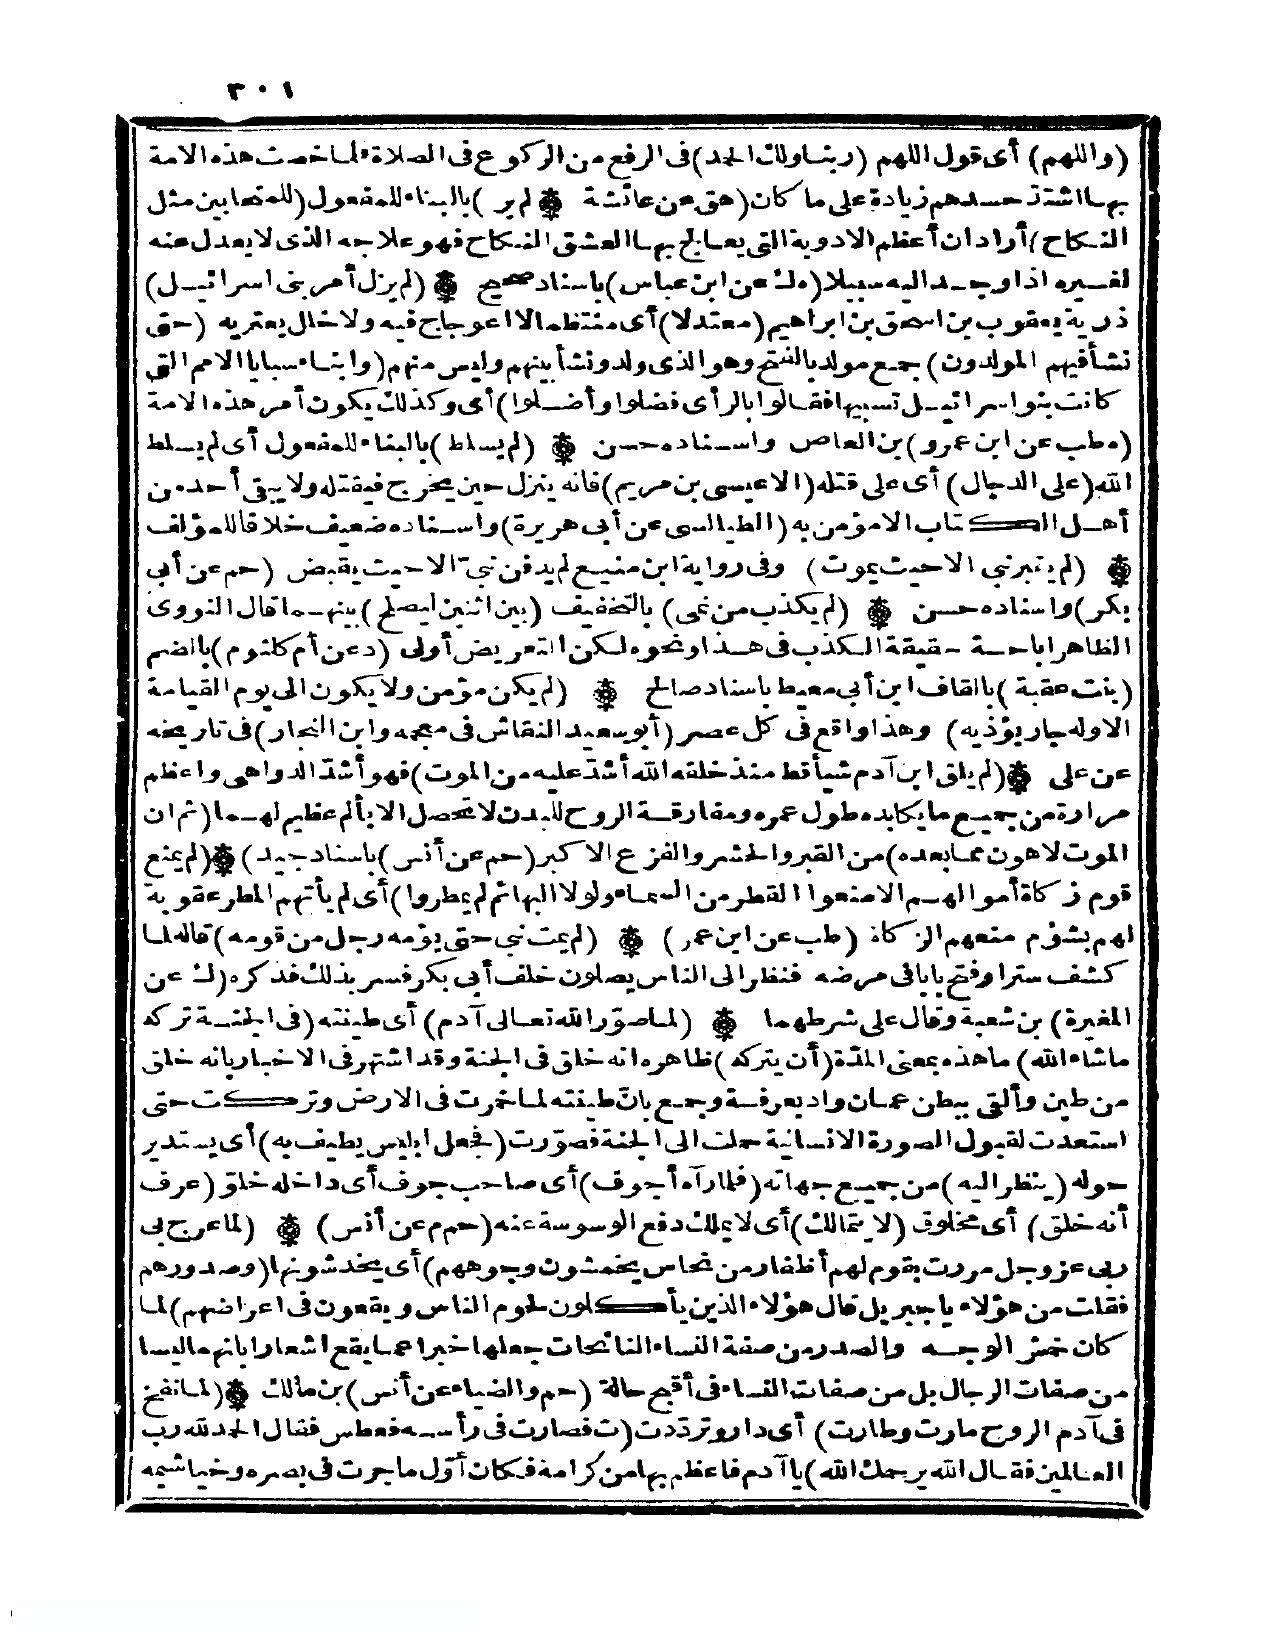 ٣٠١
(واللهم) أى قول اللهم (ربنا ولك الحمد) فى الرفع من الركوع فى الصلاة فلما خصت هذه الامة
بها اشتد حسدهم زيادة على ما كان (هق عن عائشة ۞ لم ير) بالبناء للمفعول (للمتحابين مثل
النكاح) أراد ان أعظم الادوية التى يعالج بها العشق النكاح فهو علاجه الذى لا يعدل عنه
لغيره اذا وجد اليه سبيلا (ه ك عن ابن عباس) باسناد صحيح ۞ (لم يزل أمر بنى اسرائيل)
ذرية يعقوب بن اسحق بن ابراهيم (معتدلا) أى منتظما لا اعوجاج فيه ولا خلل يعتريه (حتى
نشأ فيهم المولدون) جمع مولد بالفتح وهو الذى ولد ونشأ بينهم وليس منهم (وابناء سبايا الامم التى
كانت بنو اسرائيل تسبيها فقالوا بالرأى فضلوا وأضلوا) أى وكذلك يكون أمر هذه الامة
(ه طب عن ابن عمرو) بن العاص واسناده حسن ۞ (لم يسلط) بالبناء للمفعول أى لم يسلط
الله (على الدجال) أى على قتله (الا عيسى بن مريم) فانه ينزل حين يخرج فيقتله ولا يبقى أحد من
أهل الكتاب الا مؤمن به (الطيالسى عن أبى هريرة) واسناده ضعيف خلافا للمؤلف
۞ (لم يقبر نبى الا حيث يموت) وفى رواية ابن منيع لم يدفن نبىّ الا حيث يقبض (حم عن أبى
بكر) واسناده حسن ۞ (لم يكذب من نمى) بالتخفيف (بين اثنين ليصلح) بينهما قال النووى
الظاهر اباحة حقيقة الكذب فى هذا ونحوه لكن التعريض أولى (د عن أم كلثوم) بالضم
(بنت عقبة) بالقاف ابن أبى معيط باسناد صالح ۞ (لم يكن مؤمن ولا يكون الى يوم القيامة
الا وله جار يؤذيه) وهذا واقع فى كل عصر (أبو سعيد النقاش فى معجمه وابن النجار) فى تاريخه
عن على ۞ (لم يلق ابن آدم شيأ قط منذ خلقه الله أشدّ عليه من الموت) فهو أشدّ الدواهى واعظم
مرارة من جميع ما يكابده طول عمره ومفارقة الروح للبدن لا تحصل الا بألم عظيم لهما (ثم ان
الموت لاهون مما بعده) من القبر والحشر والفزع الاكبر (حم عن أنس) باسناد جيد) ۞ (لم يمنع
قوم زكاة أموالهم الا منعوا القطر من السماء ولولا البهائم لم يمطروا) أى لم يأتهم المطر عقوبة
لهم بشؤم منعهم الزكاة (طب عن ابن عمر) ۞ (لم يمت نبى حتى يؤمه رجل من قومه) قاله لما
كشف سترا وفتح بابا فى مرضه فنظر الى الناس يصلون خلف أبى بكر فسر بذلك فذكره (ك عن
المغيرة) بن شعبة وقال على شرطهما ۞ (لما صوّر الله تعالى آدم) أى طينته (فى الجنة تركه
ما شاء الله) ما هذه بمعنى المدّة (أن يتركه) ظاهره انه خلق فى الجنة وقد اشتهر فى الاخبار بانه خلق
من طين وألقى ببطن عمان واد بعرفة وجمع بانّ طينته لما خمرت فى الارض وتركت حتى
استعدت لقبول الصورة الانسانية حملت الى الجنة فصوّرت (فجعل ابليس يطيف به) أى يستدير
حوله (ينظر اليه) من جميع جهاته (فلما رآه أجوف) أى صاحب جوف أى داخله خلق (عرف
أنه خلق) أى مخلوق (لا يتمالك) أى لا يملك دفع الوسوسة عنه (حم م عن أنس) ۞ (لما عرج بى
ربى عز وجل مررت بقوم لهم أظفار من نحاس يخمشون وجوههم) أى يخدشونها (وصدورهم
فقلت من هؤلاء يا جبريل قال هؤلاء الذين يأكلون لحوم الناس ويقعون فى اعراضهم) لما
كان خمش الوجه والصدر من صفة النساء النائحات جعلها خبرا عما يقع اشعارا بانهما ليسا
من صفات الرجال بل من صفات النساء فى أقبح حالة (حم والضياء عن أنس) بن مالك ۞ (لما نفخ
فى آدم الروح مارت وطارت) أى دار وتردّدت (فصارت فى رأسه فعطس فقال الحمد لله رب
العالمين فقال الله يرحمك الله) يا آدم فاعظم بها من كرامة فكان أوّل ما جرت فى بصره وخياشيمه